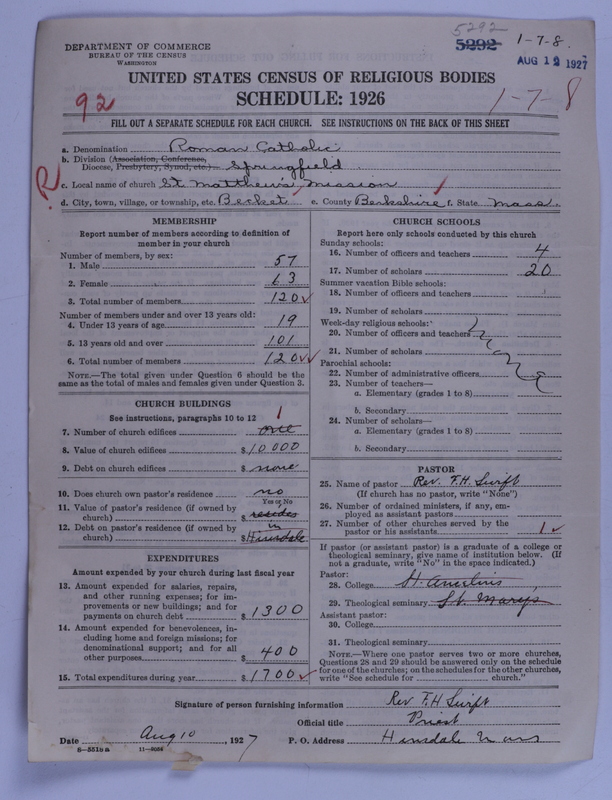 5292
5292 1-7-8.
DEPARTMENT OF COMMERCE
BUREAU OF THE CENSUS
WASHINGTON
AUG 12 1927
UNITED STATES CENSUS OF RELIGIOUS BODIES
92 SCHEDULE: 1926 1-7-8
FILL OUT A SEPARATE SCHEDULE FOR EACH CHURCH. SEE INSTRUCTIONS ON THE BACK OF THIS SHEET
a. Denomination Roman Catholic
b. Division (Association, Conference,
Diocese, Presbytery, Synod, etc.) Springfield
R
c. Local name of church St. Matthew's Mission
d. City, town, village, or township, etc. Becket e. County Berkshire f. State Mass.
MEMBERSHIP
Report number of members according to definition of
member in your church
Number of members, by sex:
1. Male 57
2. Female 63
3. Total number of members 120 ✓
Number of members under and over 13 years old:
4. Under 13 years of age 19
5. 13 years old and over 101
6. Total number of members 120 ✓✓
NOTE.—The total given under Question 6 should be
same as the total of males and females given under Question 3.
CHURCH BUILDINGS
See instructions, paragraphs 10 to 12
1
7. Number of church edifices one
8. Value of church edifices $10000
9. Debt on church edifices $none
10. Does church own pastor's residence no
Yes or No
11. Value of pastor's residence (if owned by
church) $resides
12. Debt on pastor's residence (if owned by in
church) $Hinsdale
EXPENDITURES
Amount expended by your church during last fiscal year
13. Amount expended for salaries, repairs,
and other running expenses; for im-
provements or new buildings; and for
payments on church debt $1300
14. Amount expended for benevolences, in-
cluding home and foreign missions; for
denominational support; and for all
other purposes $400
15. Total expenditures during year $1700 ✓
CHURCH SCHOOLS
Report here only schools conducted by this church
Sunday schools:
16. Number of officers and teachers 4
17. Number of scholars 20
Summer vacation Bible schools:
18. Number of officers and teachers
19. Number of scholars
Week-day religious schools:
20. Number of officers and teachers
21. Number of scholars
Parochial schools:
22. Number of administrative officers
23. Number of teachers—
a. Elementary (grades 1 to 8)
b. Secondary
24. Number of scholars—
a. Elementary (grades 1 to 8)
b. Secondary
PASTOR
25. Name of pastor Rev. F.H. Swift
(If church has no pastor, write "None")
26. Number of ordained ministers, if any, em-
ployed as assistant pastors
27. Number of other churches served by the
pastor or his assistants 1 ✓
If pastor (or assistant pastor) is a graduate of a college or
theological seminary, give name of institution below. (If
not a graduate, write "No" in the space indicated.)
Pastor:
28. College
29. Theological seminary St. Marys
Assistant pastor:
30. College
31. Theological seminary
NOTE.—Where one pastor serves two or more churches,
Questions 28 and 29 should be answered only on the schedule
for one of the churches; on the schedules for the other churches,
write "See schedule for church."
Signature of person furnishing information Rev F.H Swift
Official title Priest
Date Aug 10, 1927 P. O. Address Hinsdale Mass
8-551b a 11-9054